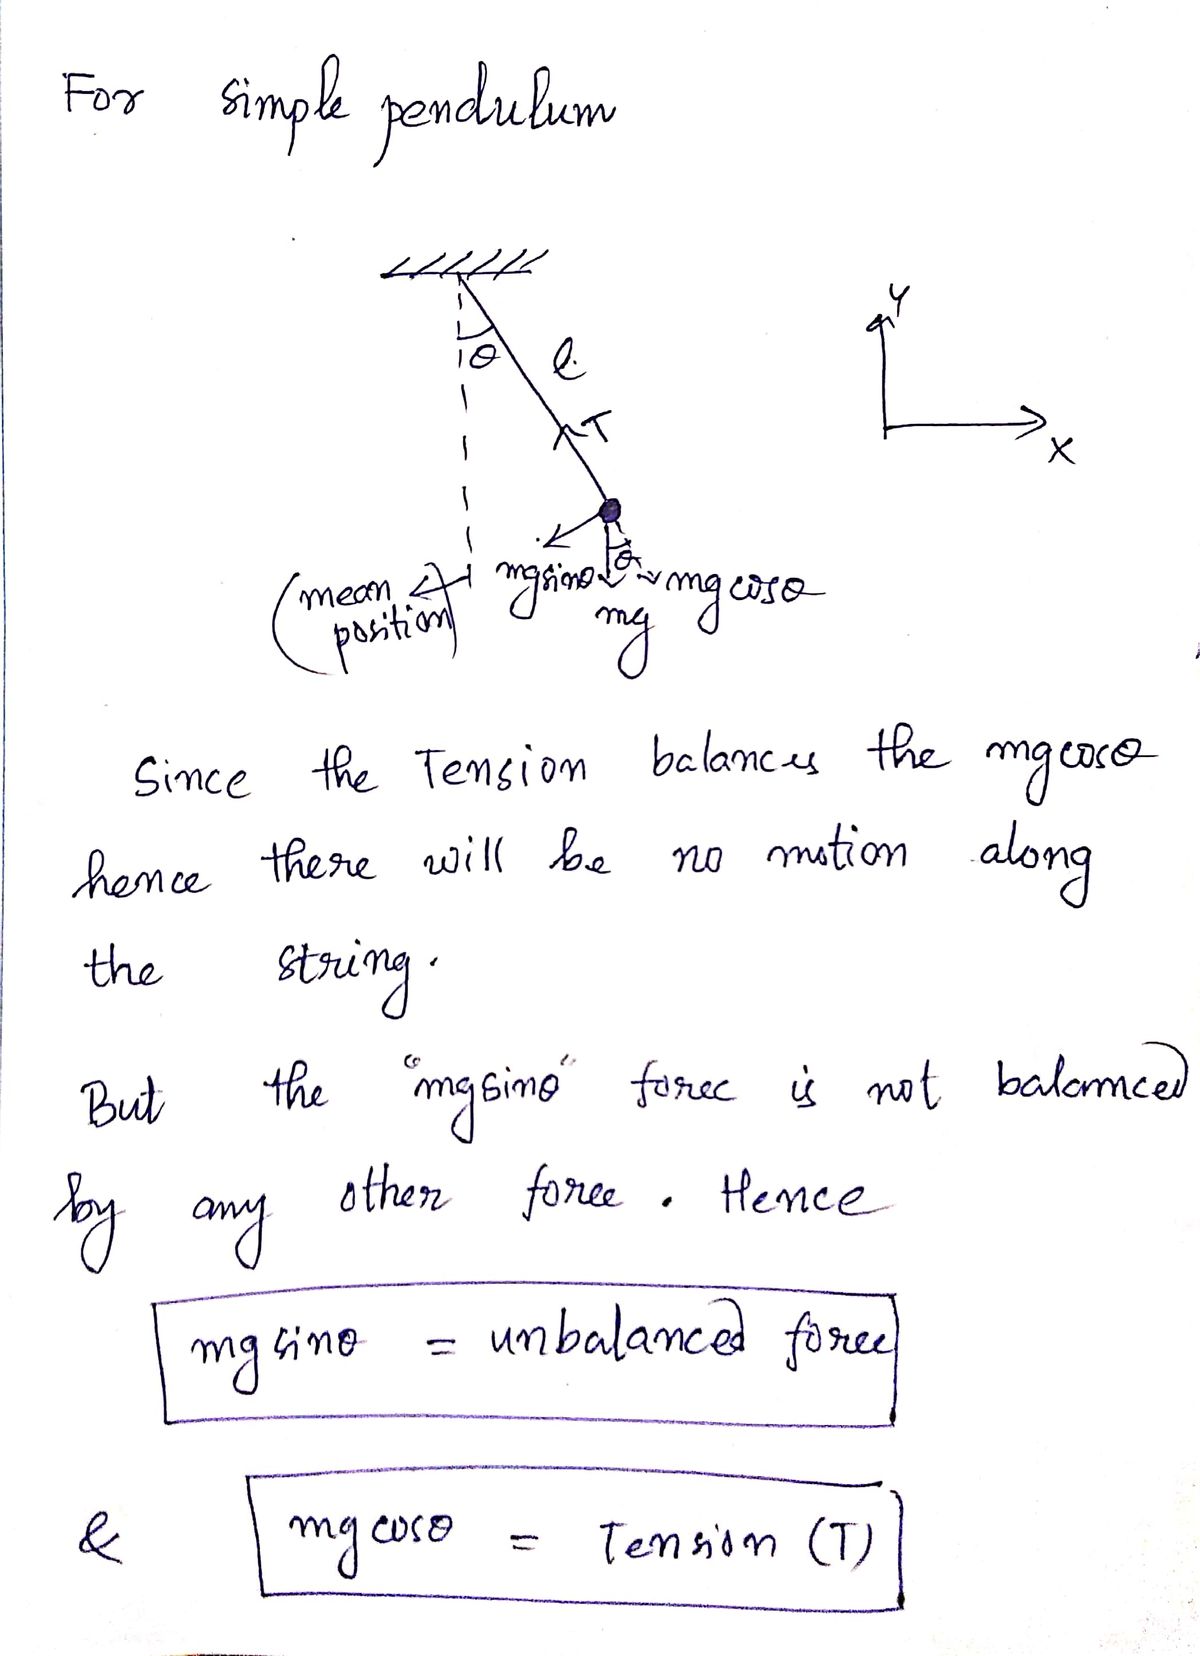 For simple pendulum
Y
θ
l
T
X
θ
(mean position)
mgsinθ
mgcosθ
mg
Since the Tension balances the mgcosθ
hence there will be no motion along
the string.
But the "mgsinθ" force is not balanced
by any other force. Hence
mg sinθ = unbalanced force
& mg cosθ = Tension (T)